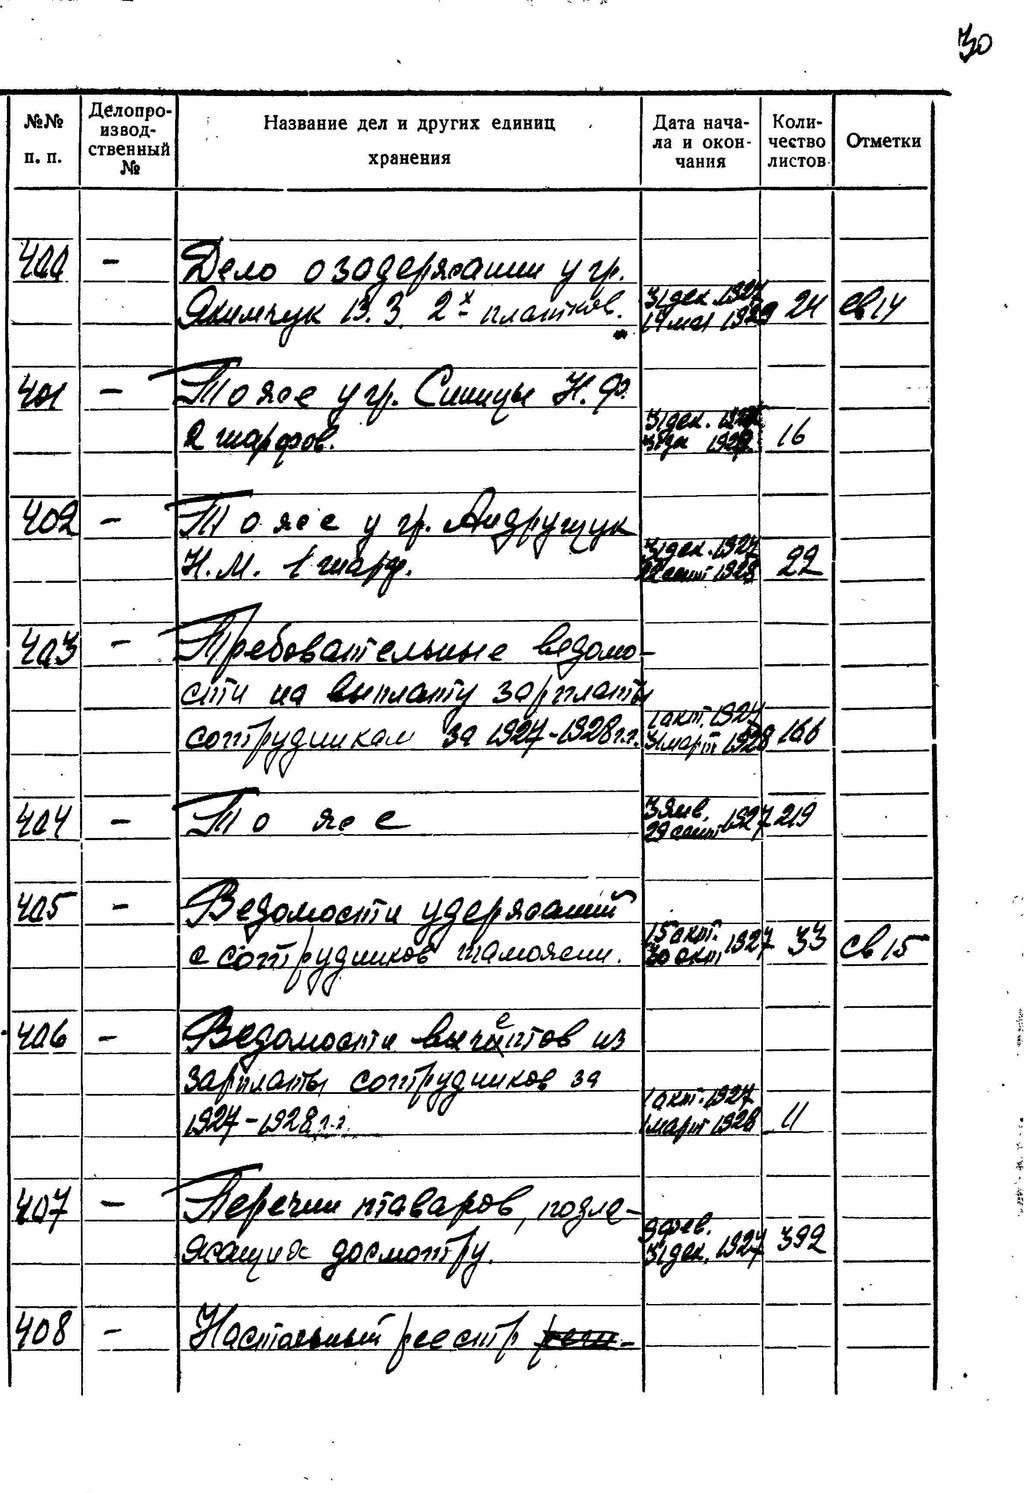 30
№№ п. п. Делопро-извод-ственный № Название дел и других единиц хранения Дата нача-ла и окон-чания Коли-чество листов Отметки
400 – Дело о задержании у гр.
Якимчук В.З. 2х платков. 31 дек. 1927 24 св 14
401 – То же у гр. Синицы Н.Ф.
2 шарфов. 31 дек. 16
402 – То же у гр. Андрущук
Н.М. 1 шарф. 31 дек. 1927 22 сент 1928 22
403 – Требовательные ведомо-
сти на выплату зарплаты
сотрудникам за 1927-1928 г.г. 1 окт. 1927 31 март 1928 166
404 – То же 3 янв. 29 сент 1927 219
405 – Ведомости удержаний
с сотрудников таможни. 15 окт. 30 окт 1927 33 св 15
406 – Ведомости вычетов из
зарплаты сотрудников за
1927-1928 г.г. 1 окт. 1927 1 март 1928 11
407 – Перечни товаров, подле-
жащих досмотру. 9 фев. 31 дек. 1927 392
408 – Настольный реестр